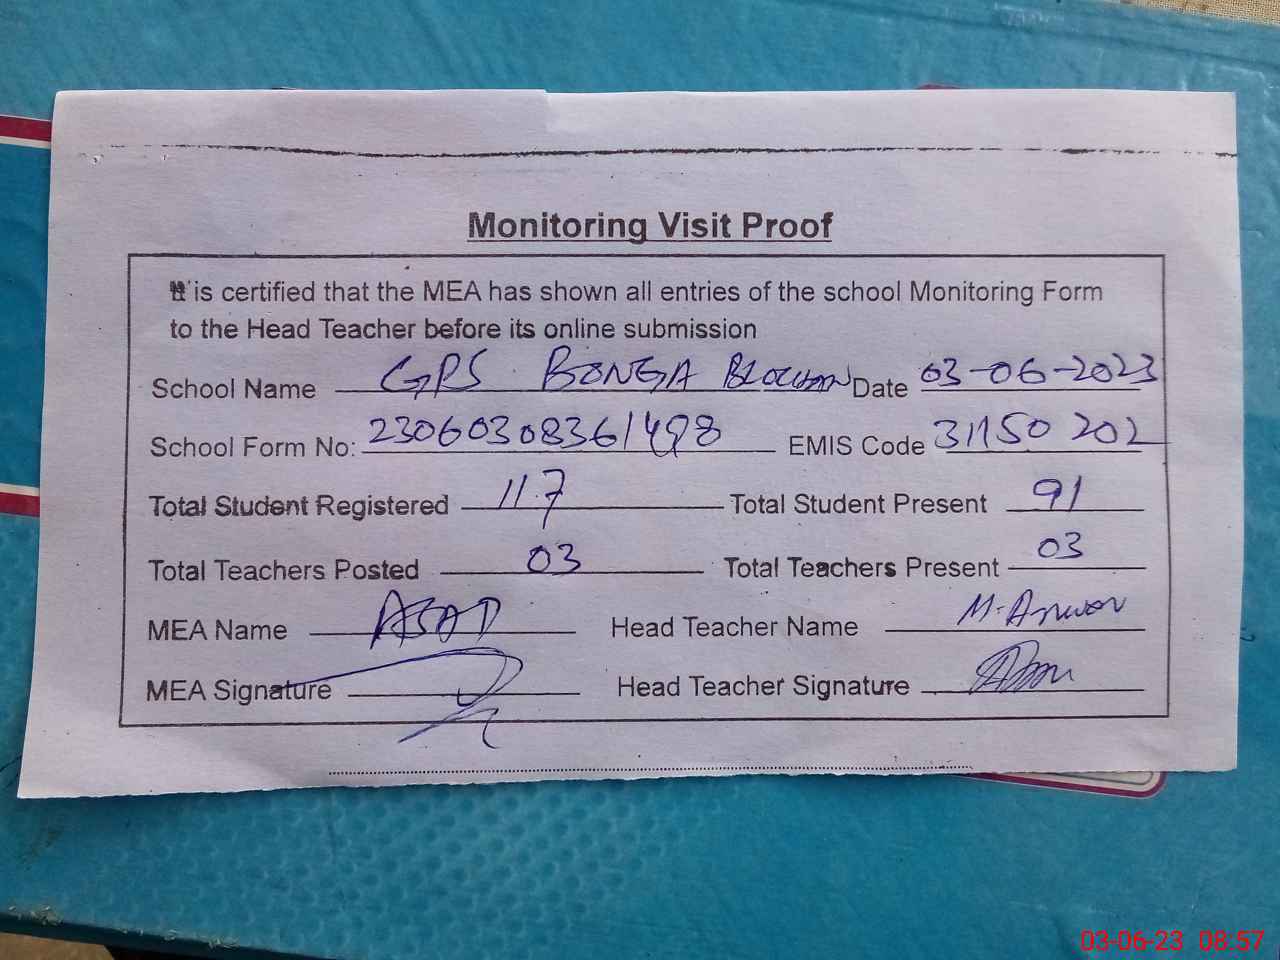 Monitoring Visit Proof
It is certified that the MEA has shown all entries of the school Monitoring Form
to the Head Teacher before its online submission
School Name GPS BONGA BLOCHAN Date 03-06-2023
School Form No: 23060308361498 EMIS Code 31150202
Total Student Registered 117 Total Student Present 91
Total Teachers Posted 03 Total Teachers Present 03
MEA Name ASAD Head Teacher Name M. Anwar
MEA Signature Head Teacher Signature
03-06-23 08:57